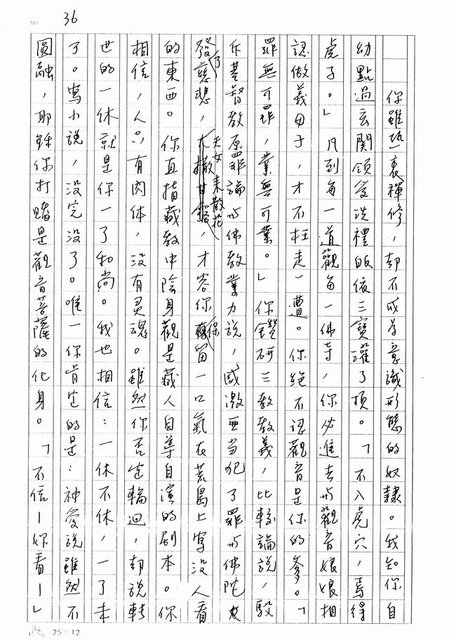 36
你雖熱衷禪修,却不成為意識形態的奴隸。我知你自
幼點過玄關領受洗禮皈依三寶灌了頂。「不入虎穴,焉得
虎子。」凡到每一道觀每一佛寺,你必進去與觀音娘娘相
認做義子,才不枉走一遭。你絕不認觀音是你的爹。「
罪無可罪,業無可業。」你鑽研三教教義,比較論說,駁
斥基督教原罪論與佛教業力說,感激亞當犯了罪與佛陀大
發了慈悲,天女來散花,才容你保留一口氣在荒島上寫沒人看
的東西。你直指藏教中陰身觀是藏人自導自演的劇本。你
相信,人只有肉体,沒有灵魂。雖然你否定輪迴,却說轉
世的一休就是你一了和尚。我也相信:一休不休,一了未
了。寫小說,沒完沒了。唯一你肯定的是:神愛說雖然不
圓融,耶穌你打賭是觀音菩薩的化身。「不信—妳看—」
25×12